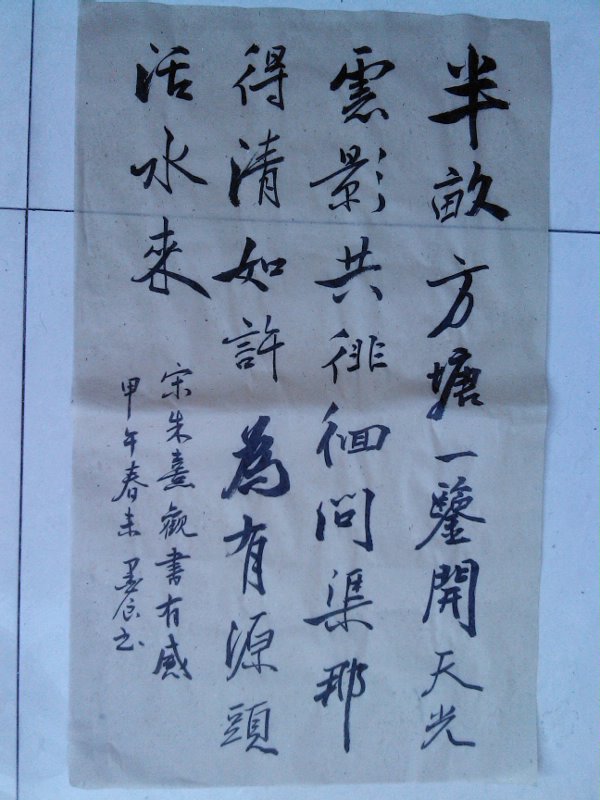 半畝方塘一鑒開天光
雲影共徘徊問渠那
得清如許為有源頭
活水來
宋朱熹觀書有感
甲午春末墨辰书